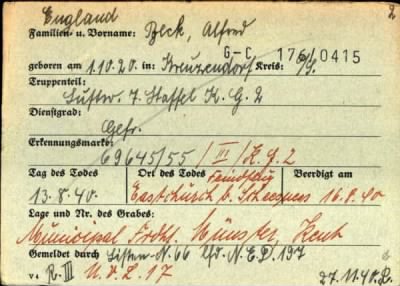 England
2
Familien- u. Vorname: Beck, Alfred
G-C 176/0415
geboren am 1.10.20. in: Kreuzendorf Kreis:
Truppenteil:
Luftw. 7. Staffel K.G.2
Dienstgrad:
Gefr.
Erkennungsmarke:
69645/55 / III/K.G.2
Tag des Todes Ort des Todes Beerdigt am
13.8.40. Eastchurch b. Sheerness 16.8.40
Lage und Nr. des Grabes:
Municipal Frdhf. Münster, Kent
Gemeldet durch Listen-N. 66 lfd. N. E.D. 197
v4 R.III U.v.L. 17 27.11.40.B.